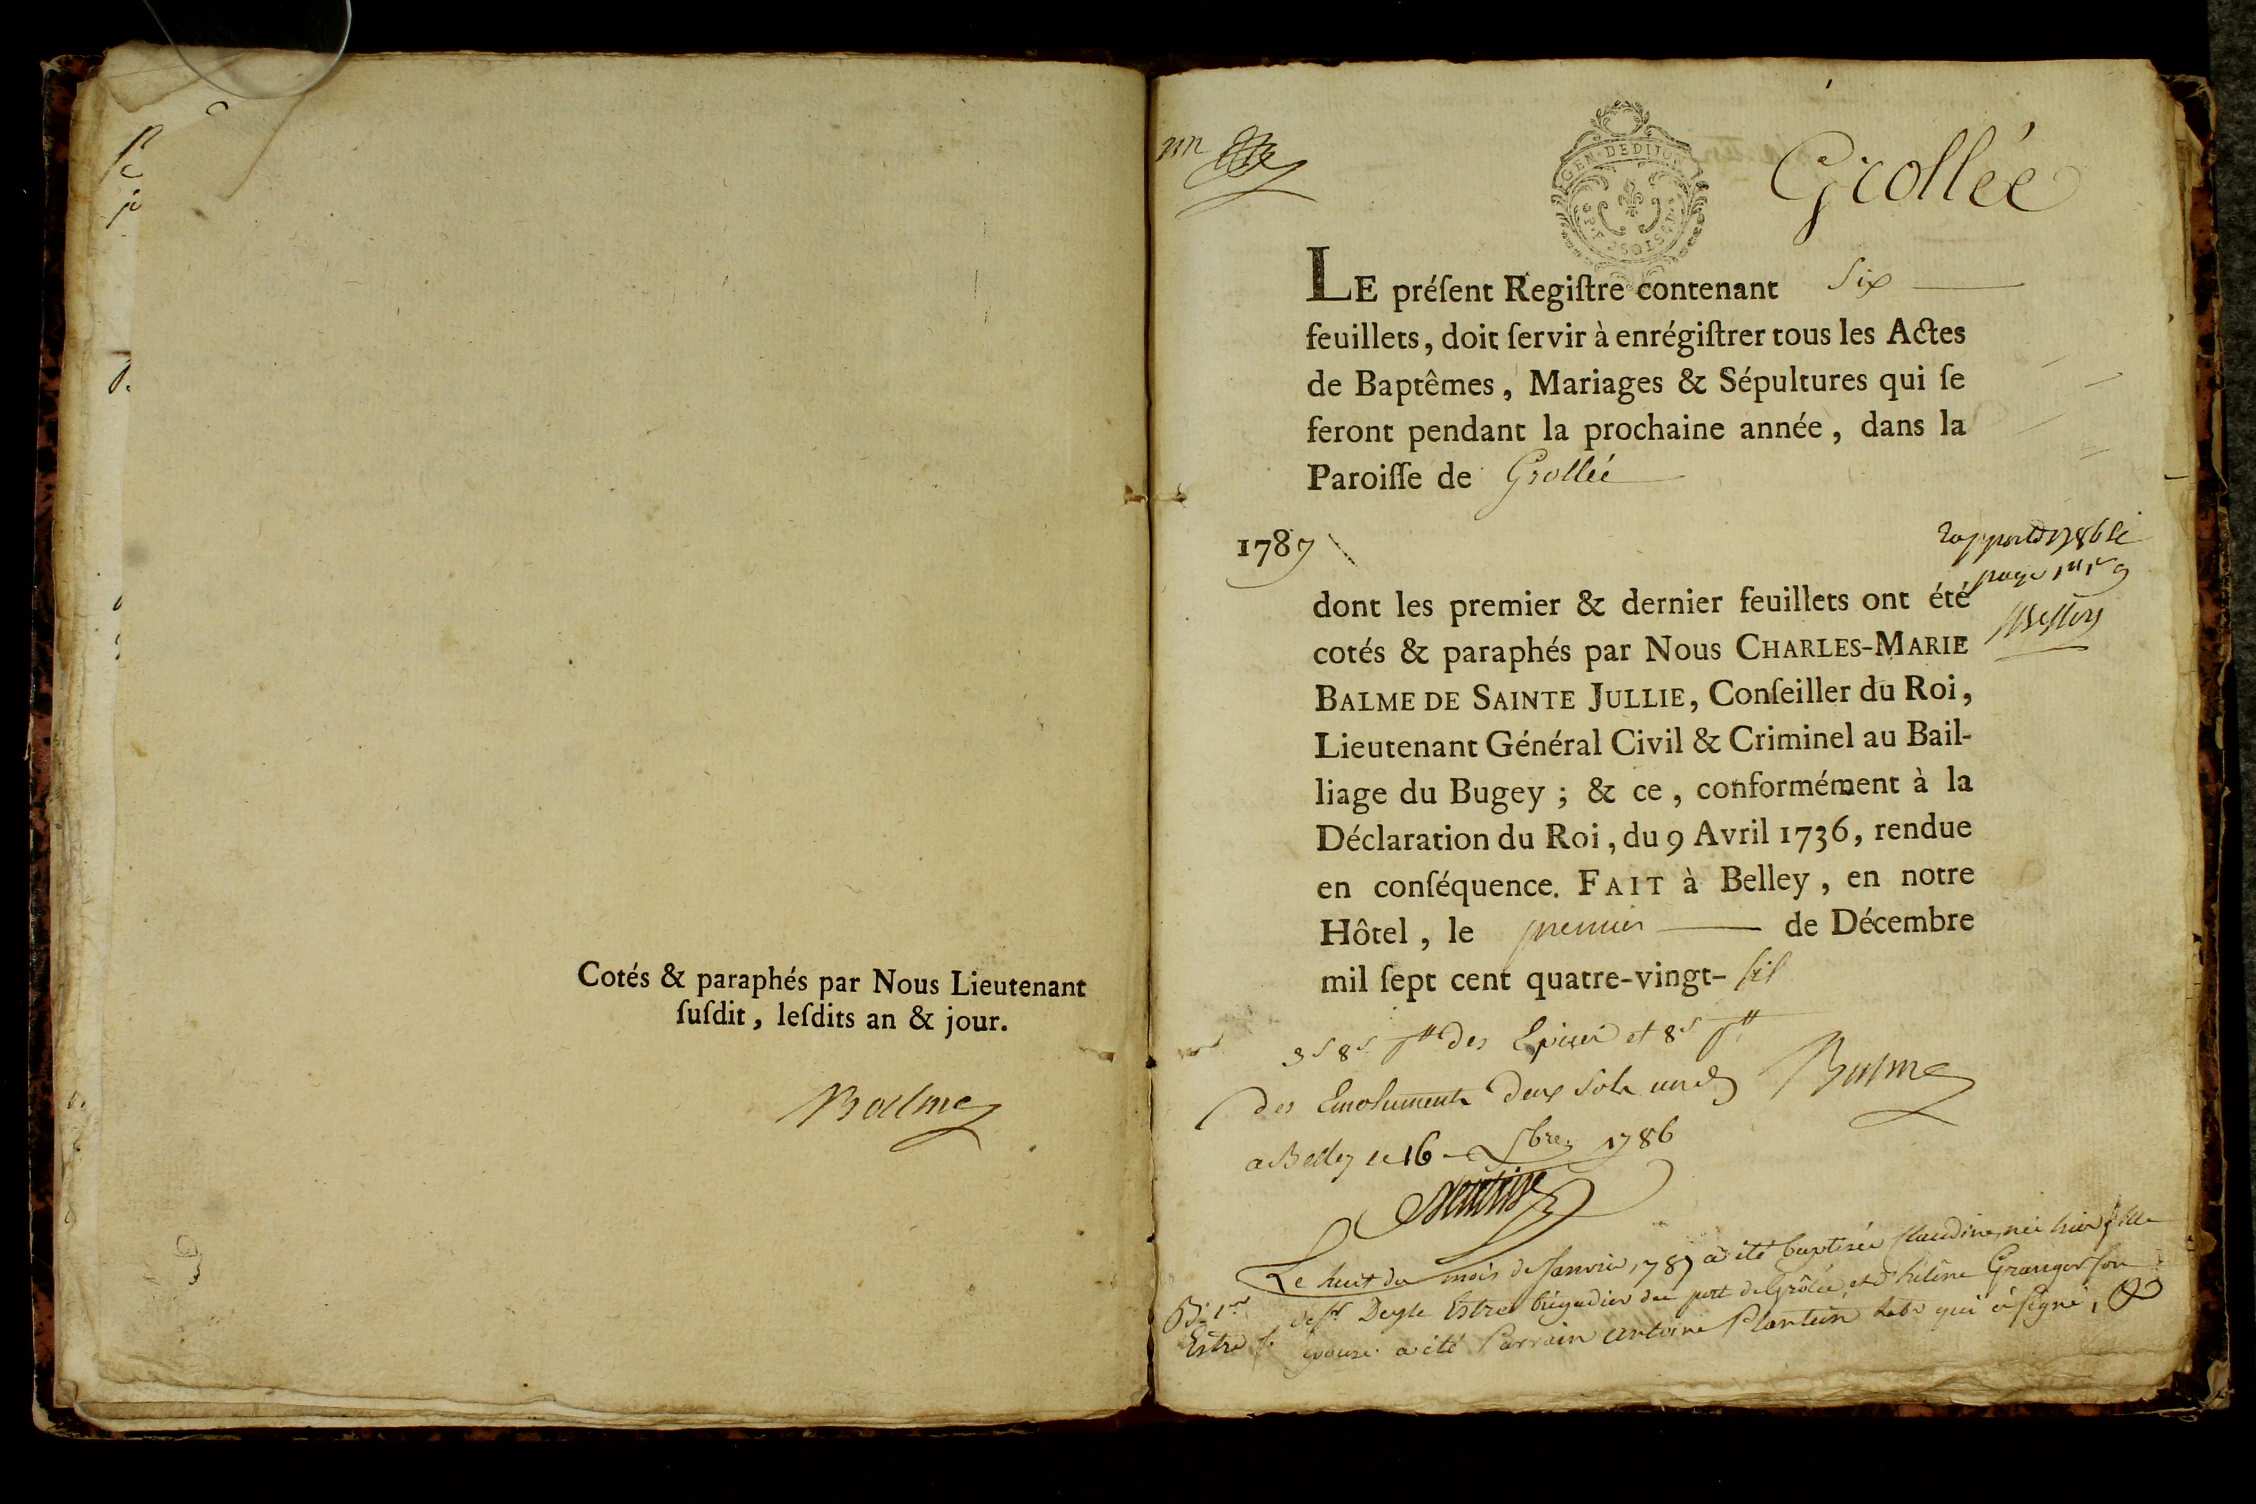 Cotés & paraphés par Nous Lieutenant
ſuſdit, leſdits an & jour.
Balme
Grollée
GEN · DE DIJON
LE préſent Regiſtre contenant Six
feuillets, doit ſervir à enrégiſtrer tous les Actes
de Baptêmes, Mariages & Sépultures qui ſe
feront pendant la prochaine année, dans la
Paroiſſe de Grollée
1787
dont les premier & dernier feuillets ont été
cotés & paraphés par Nous CHARLES-MARIE
BALME DE SAINTE JULLIE, Conſeiller du Roi,
Lieutenant Général Civil & Criminel au Bail-
liage du Bugey ; & ce, conformément à la
Déclaration du Roi, du 9 Avril 1736, rendue
en conſéquence. FAIT à Belley, en notre
Hôtel, le premier de Décembre
mil ſept cent quatre-vingt-six
des Epices et 8s
des Emoluments deux sols
Balme
a Belley le 16 1786
Le huit du mois de Janvier 1787 a été baptisée Claudine née hier fille
de sr Estre brigadier du port de Grôlée, et d'hélène Granger son
Estre f. épouse. a été Parrain antoine Plantin qui a signé,